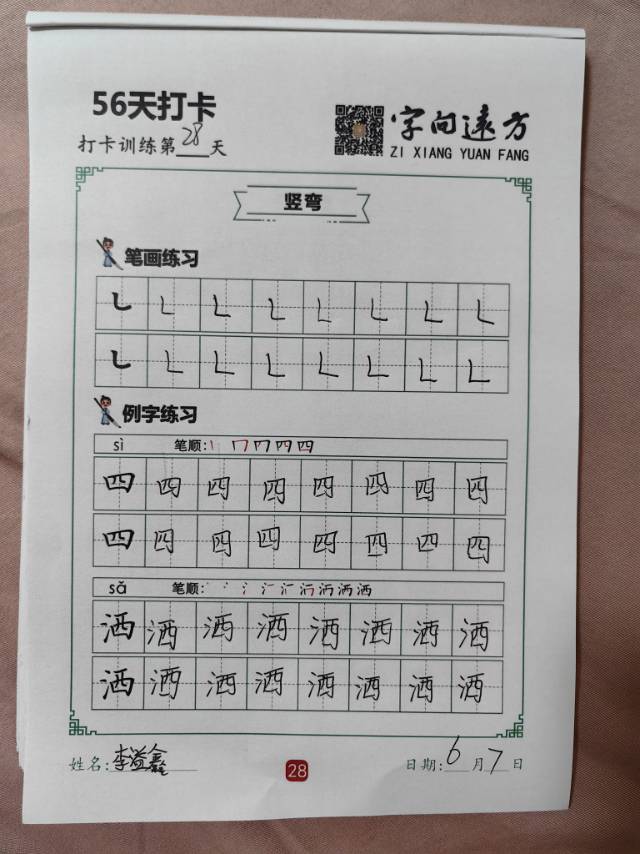 56天打卡
打卡训练第28天
字向远方
ZI XIANG YUAN FANG
竖弯
笔画练习
㇄ ㇄ ㇄ ㇄ ㇄ ㇄ ㇄ ㇄
㇄ ㇄ ㇄ ㇄ ㇄ ㇄ ㇄ ㇄
例字练习
sì 笔顺:
四 四 四 四 四 四 四 四
四 四 四 四 四 四 四 四
sǎ 笔顺:
洒 洒 洒 洒 洒 洒 洒 洒
洒 洒 洒 洒 洒 洒 洒 洒
姓名:李益鑫
28
日期:6月7日